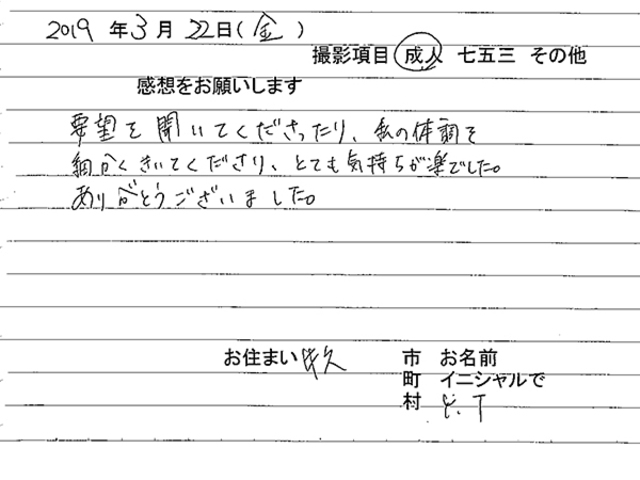 2019年3月22日(金)
撮影項目 成人 七五三 その他
感想をお願いします
要望を聞いてくださったり、私の体調を
細かくきいてくださり、とても気持ちが楽でした。
ありがとうございました。
お住まい 牛久 市 お名前
町 イニシャルで
村 .T